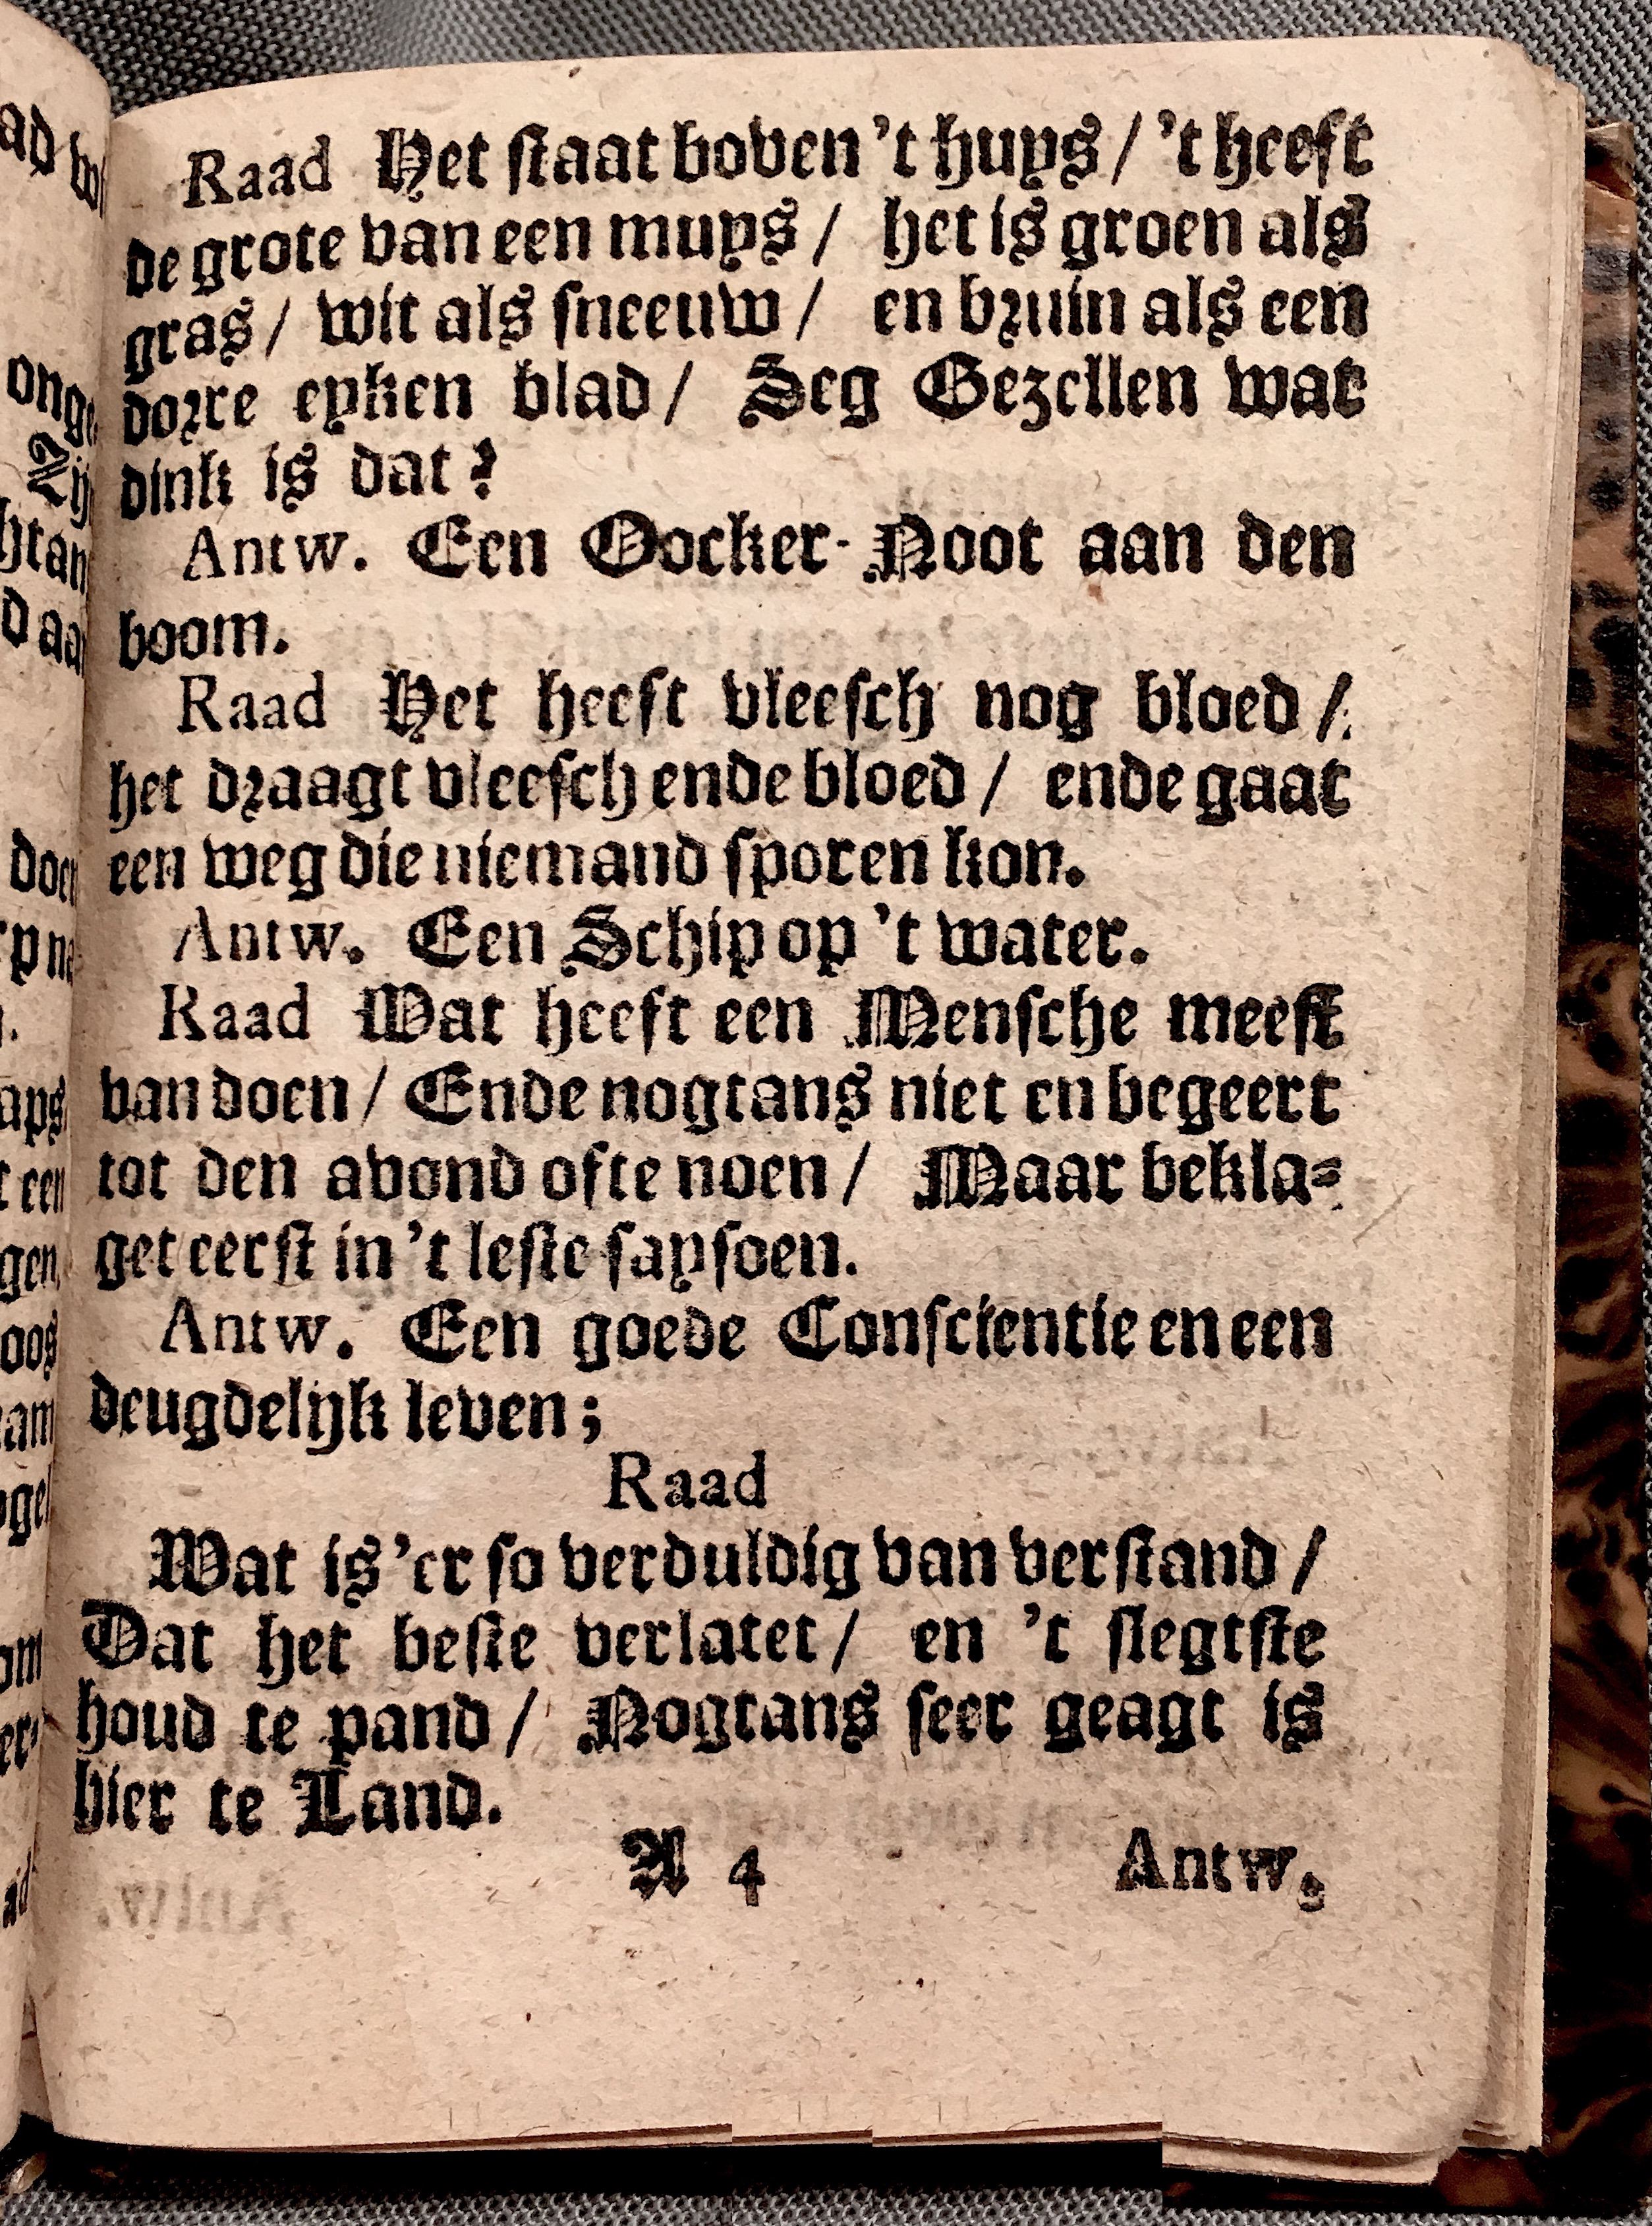 Raad Het staat boven 't huys / 't heeft
de grote van een muys / het is groen als
gras / wit als sneeuw / en bruin als een
dorre eyken blad / Seg Gezellen wat
dink is dat?
Antw. Een Oocker-Noot aan den
boom.
Raad Het heeft vleesch nog bloed /
het draagt vleesch ende bloed / ende gaat
een weg die niemand sporen kon.
Antw. Een Schip op 't water.
Raad Wat heeft een Mensche meest
van doen / Ende nogtans niet en begeert
tot den avond ofte noen / Maar bekla-
get eerst in 't leste saysoen.
Antw. Een goede Conscientie en een
deugdelijk leven;
Raad
Wat is 'er so verduldig van verstand /
Dat het beste verlatet / en 't slegtste
houd te pand / Nogtans seer geagt is
hier te Land.
A 4 Antw.